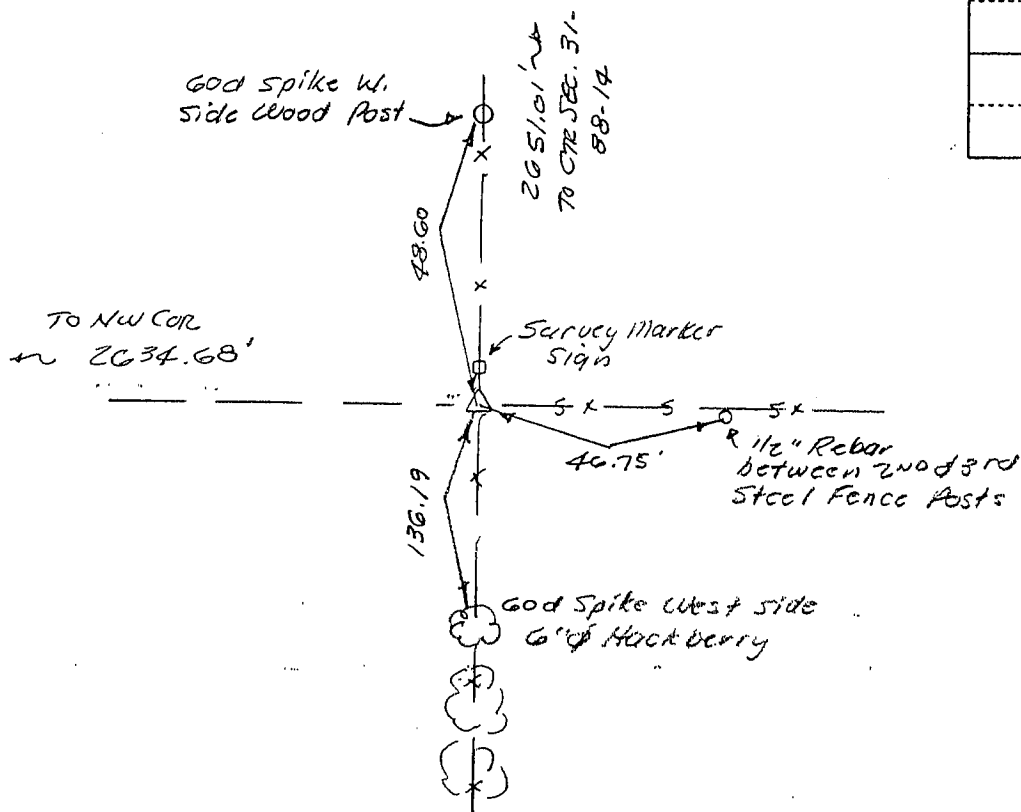 60d Spike W.
Side Wood Post
2651.01'
TO CTR SEC. 31-
88-14
48.60
TO NW COR
2634.68'
Survey Marker
Sign
46.75'
1/2" Rebar
between 2ND & 3rd
Steel Fence Posts
136.19
60d Spike West side
6"ø Hackberry